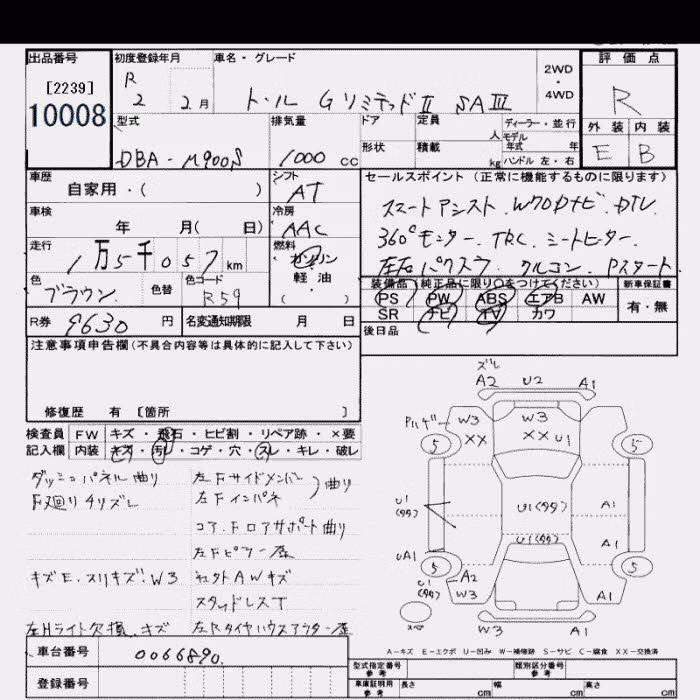 出品番号 初度登録年月 車名・グレード 評価点
[2239] R 2WD
10008 2 2月 トール GリミテッドⅡ SAⅢ 4WD R
型式 排気量 ドア 定員 ディーラー・並行 外装 内装
人 モデル年式 年
DBA-M900S 1000 cc 形状 積載 kg ハンドル 左・右 E B
車歴 シフト セールスポイント (正常に機能するものに限ります)
自家用・( ) AT
スマートアシスト.W70Dナビ.DTV.
車検 冷房
年 月( 日) AAC 360°モニター.TRC.シートヒーター.
走行 燃料
1万5千057km ガソリン 左右パワスラ クルコン.Pスタート
軽油
色 色替 色コード ( ) 装備品(純正品に限り○をつけてください) 新車保証書
ブラウン. R59 PS PW ABS エアB AW 有・無
SR ナビ TV カワ
R券 9630 円 名変通知期限 月 日 後日品
注意事項申告欄(不具合内容等は具体的に記入して下さい)
修復歴 有 [箇所 ]
検査員 FW キズ・飛石・ヒビ割・リペア跡・×要
記入欄 内装 キズ・汚レ・コゲ・穴・スレ・キレ・破レ
ダッシュパネル曲り 左Fサイドメンバー
左Fインパネ )曲り
F廻りチリズレ
コア.Fロアサポート曲り
左Fピラー歪
キズE.スリキズ.W3 社外AWキズ
スタッドレスT
左Hライト欠損.キズ 左Rタイヤハウスアウター歪
ズレ
A2 U2 A1
W3 W3
XX XX U1
5 5
U1(タタ) U1(タタ) A1
U1(タタ) A1
UA1
5 5
U1(タタ) A2
W3 A1
スペ
W3 A1
A-キズ E-エクボ U-凹み W-補修跡 S-サビ C-腐食 XX-交換済
車台番号 0066890. 型式指定番号 参考 類別区分番号 参考
登録番号 車庫証明用 参考 長さ cm 幅 cm 高さ cm